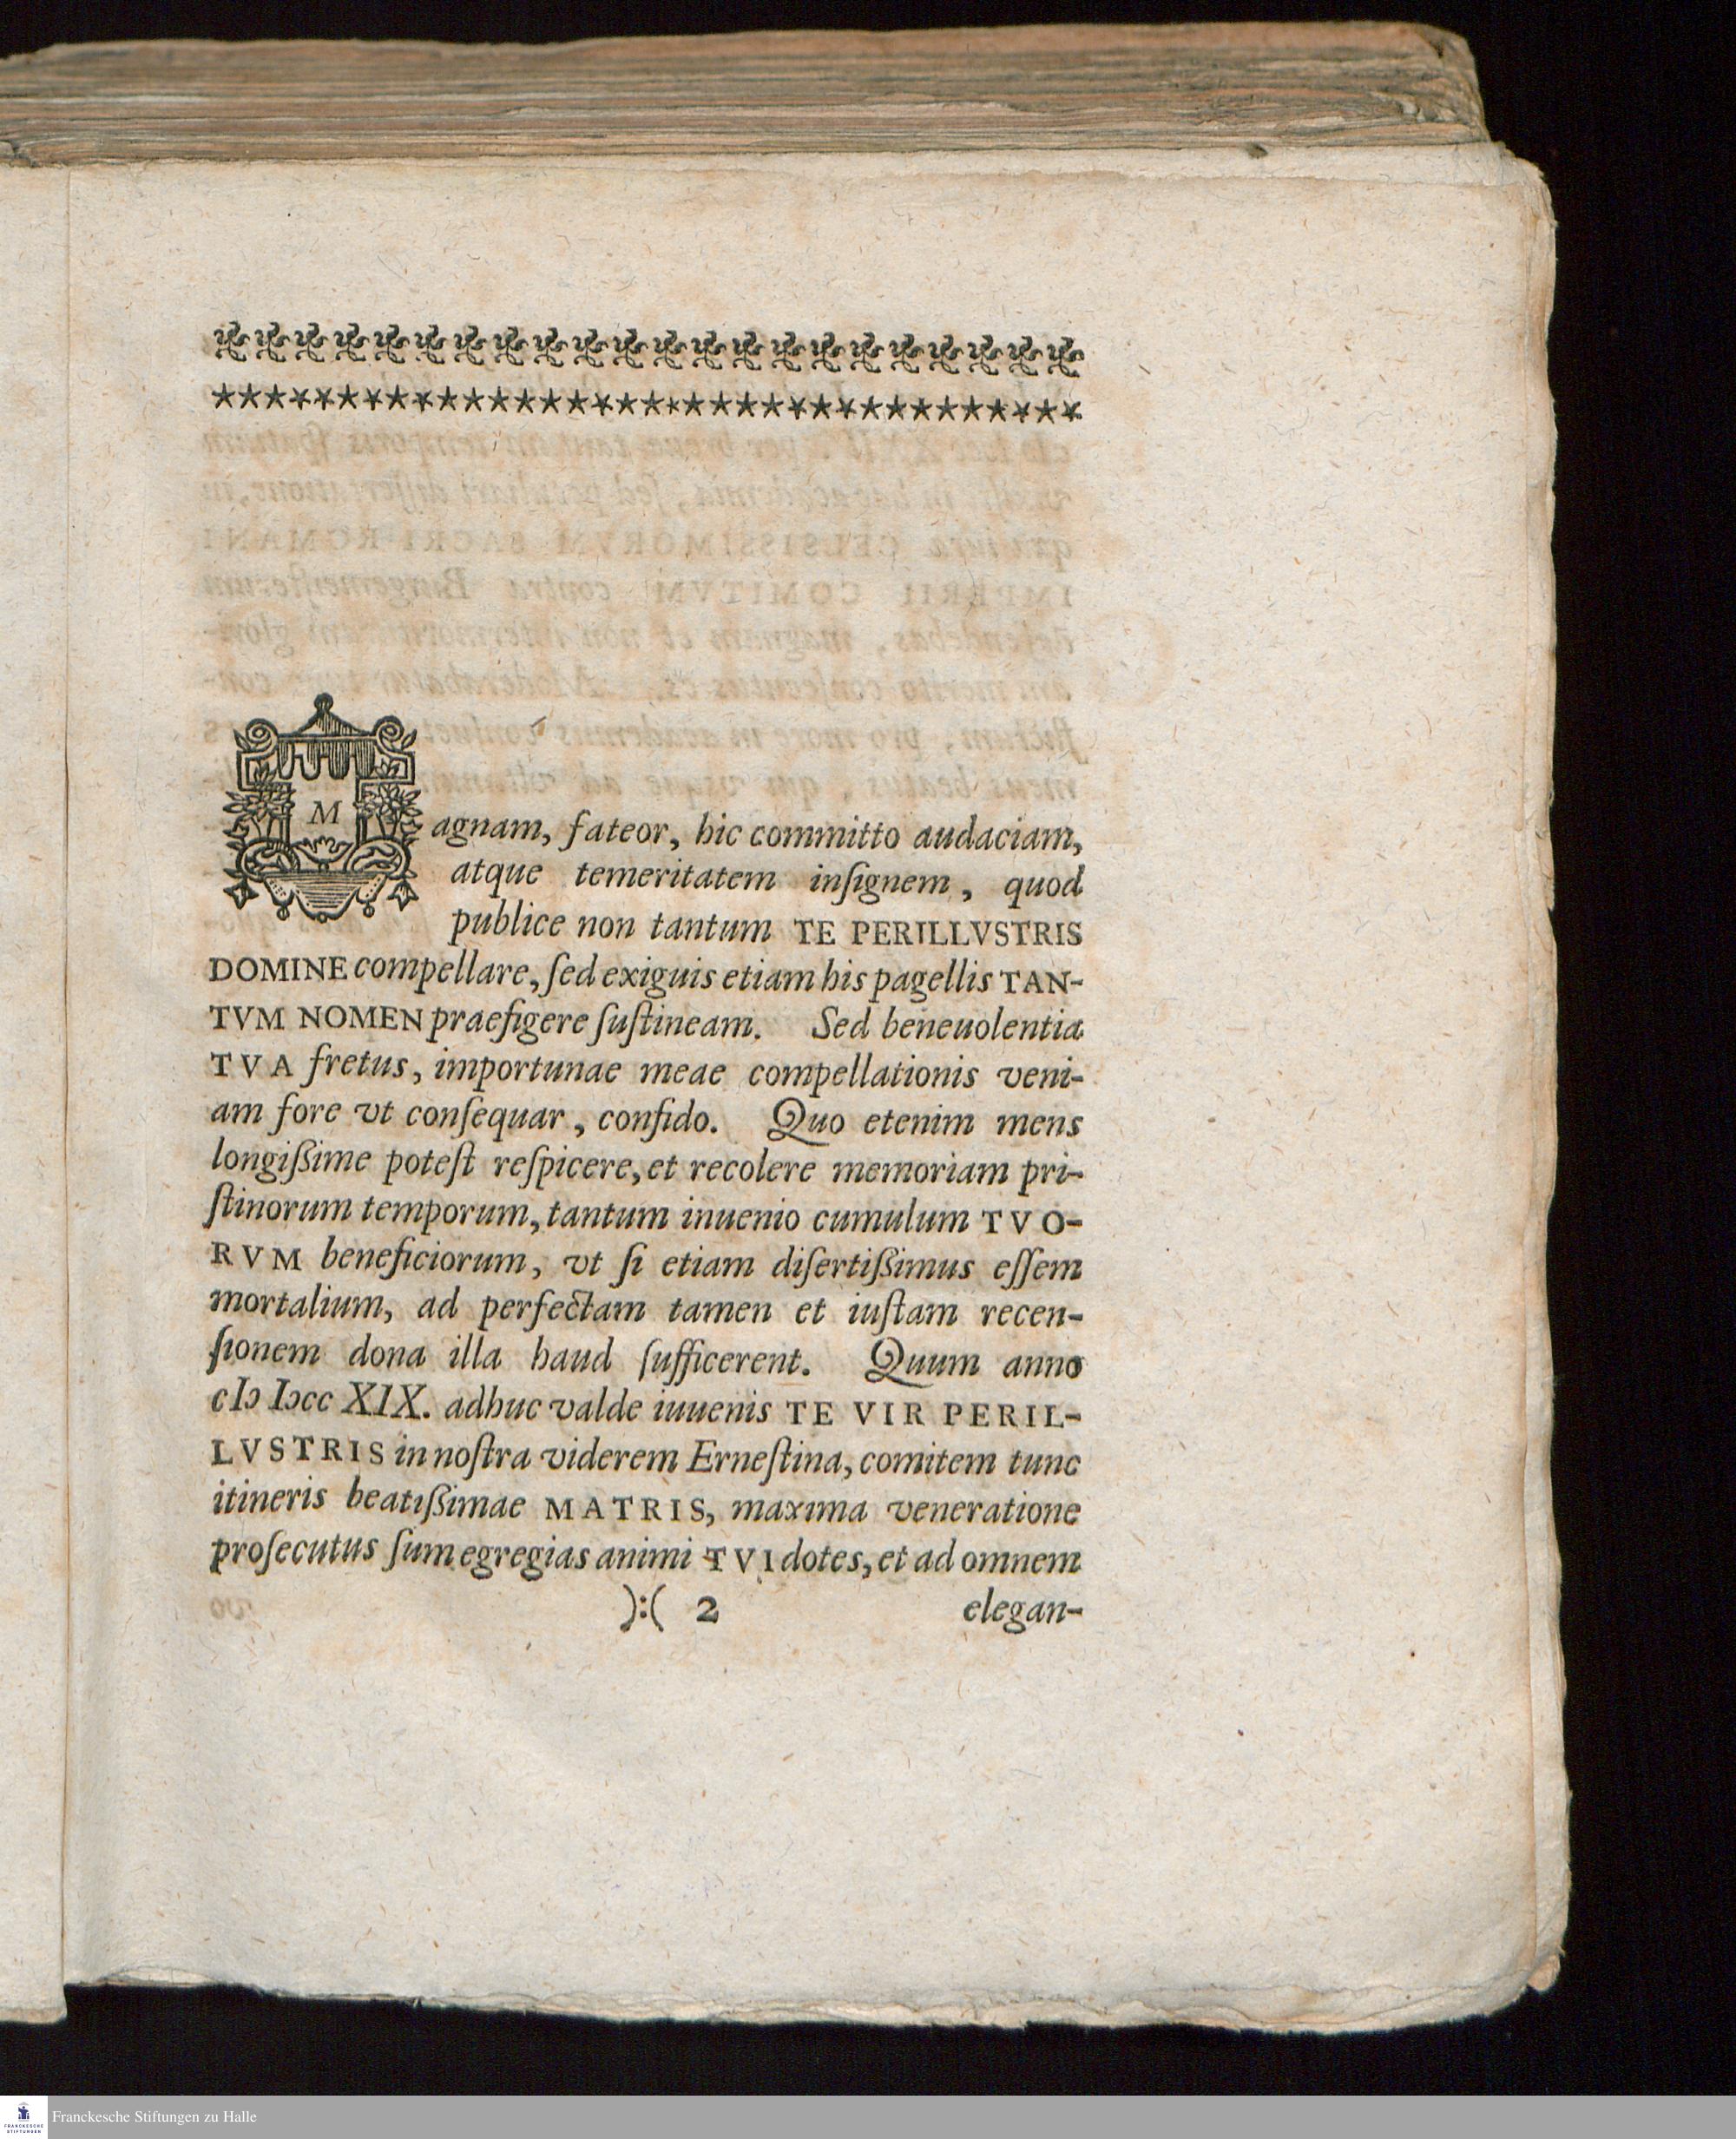 Magnam, fateor, hic committo audaciam,
atque temeritatem inſignem, quod
publice non tantum TE PERILLVSTRIS
DOMINE compellare, ſed exiguis etiam his pagellis TAN-
TVM NOMEN praefigere ſuſtineam. Sed beneuolentia
TVA fretus, importunae meae compellationis veni-
am fore vt conſequar, confido. Quo etenim mens
longiſſime poteſt reſpicere, et recolere memoriam pri-
ſtinorum temporum, tantum inuenio cumulum TVO-
RVM beneficiorum, vt ſi etiam diſertiſſimus eſſem
mortalium, ad perfectam tamen et iuſtam recen-
ſionem dona illa haud ſufficerent. Quum anno
cIɔ Iɔcc XIX. adhuc valde iuuenis TE VIR PERIL-
LVSTRIS in noſtra viderem Erneſtina, comitem tunc
itineris beatiſſimae MATRIS, maxima veneratione
proſecutus ſum egregias animi TVI dotes, et ad omnem
):( 2 elegan-
Franckesche Stiftungen zu Halle
FRANCKESCHE
STIFTUNGEN